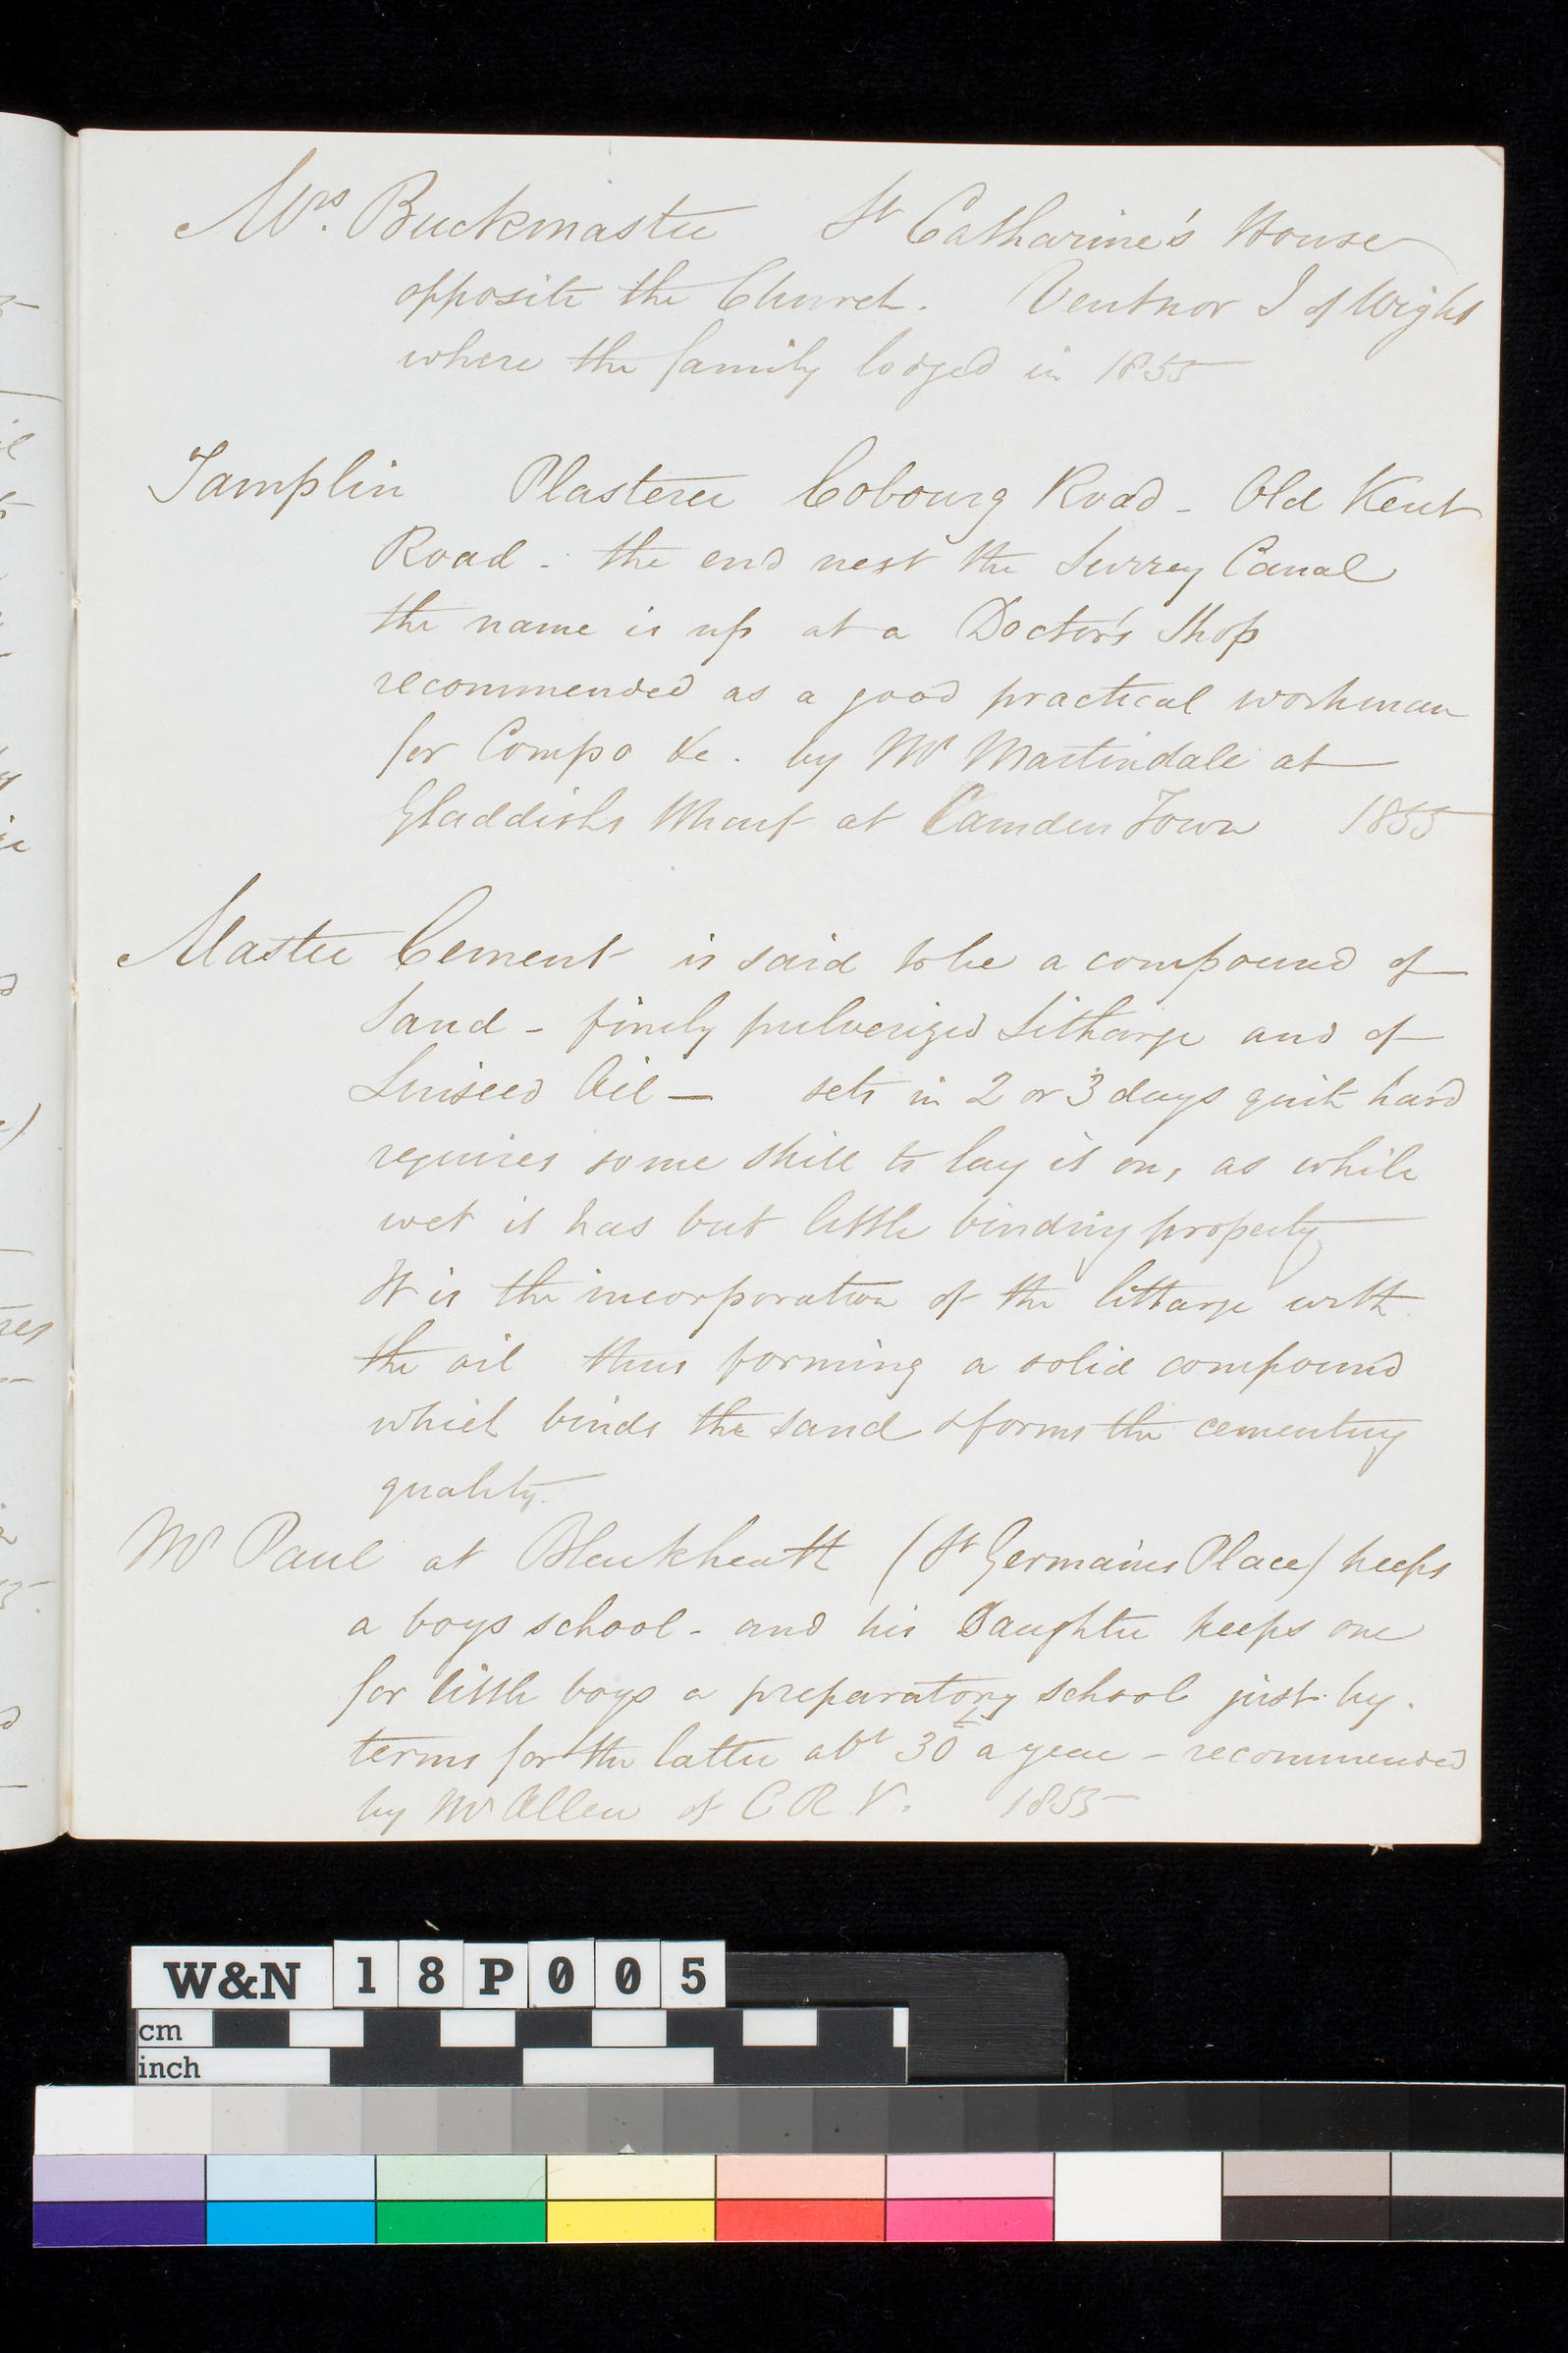 Mrs. Buckmaster St Catharine's House
opposite the Church. Ventnor I of Wight
where the family lodged in 1855
Tamplin Plasterer Cobourg Road - Old Kent
Road - the end next the Surrey Canal
the name is up at a Doctor's Shop
recommended as a good practical workman
for Compo &c. by Mr Martindale at
Gladdishs Wharf at Camden Town 1855
Mastic Cement is said to be a compound of
Sand - finely pulverized Litharge and of
Linseed Oil — sets in 2 or 3 days quite hard
requires some skill to lay it on, as while
wet it has but little binding property
It is the incorporation of the litharge with
the oil thus forming a solid compound
which binds the sand & forms the cementing
quality.
Mr Paul at Blackheath (St Germains Place) keeps
a boys school - and his Daughter keeps one
for little boys a preparatory school just by.
terms for the latter abt 30£ a year - recommended
by Mr Allen of C R V. 1855
W&N 18P005
cm
inch